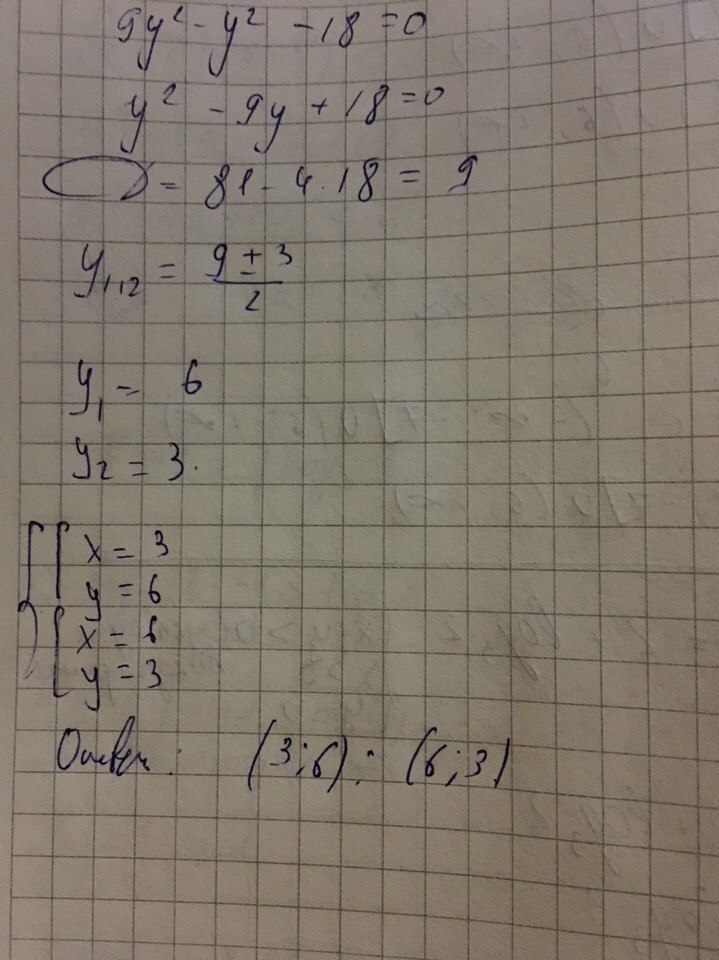 9y² - y² - 18 = 0
y² - 9y + 18 = 0
D = 81 - 4 · 18 = 9
y₁,₂ = (9 ± 3) / 2
y₁ = 6
y₂ = 3.
x = 3
y = 6
x = 6
y = 3
Ответ: (3;6); (6;3)